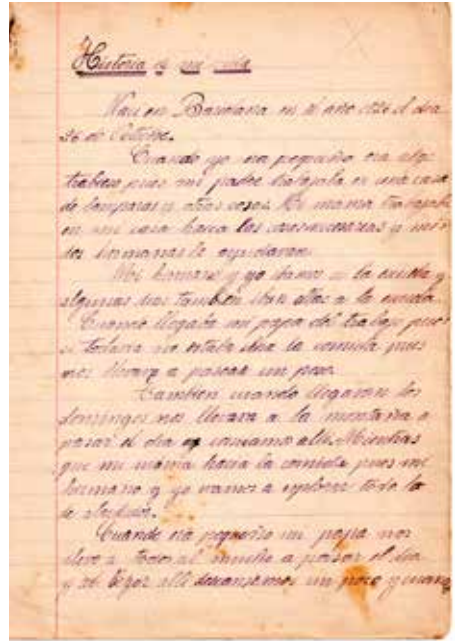 Historia de mi vida
Naci en Barcelona en el año 1926 el dia
26 de Octubre.
Cuando yo era pequeño era algo
trabieso pues mi padre trabajaba en una casa
de lamparas y otras cosas. Mi mama trabajaba
en mi casa hacia las y mis
dos hermanas la ayudavan.
Mi hermano y yo ibamos a la escuela y
algunos dias tambien iban ellas a la escuela.
Cuando llegaba mi papa del trabajo pues
si todavia no estaba la comida pues
nos llevava a pasear un poco.
Tambien cuando llegavan los
domingos nos llevava a la montaña a
pasar el dia y comiamos alli. Mientras
que mi mama hacia la comida pues mi
hermano y yo vamos a esplorar todo lo
de alrededor.
Cuando era pequeño mi papa nos
llevo a todos al a pasar el dia
y al llegar alli descansamos un poco y